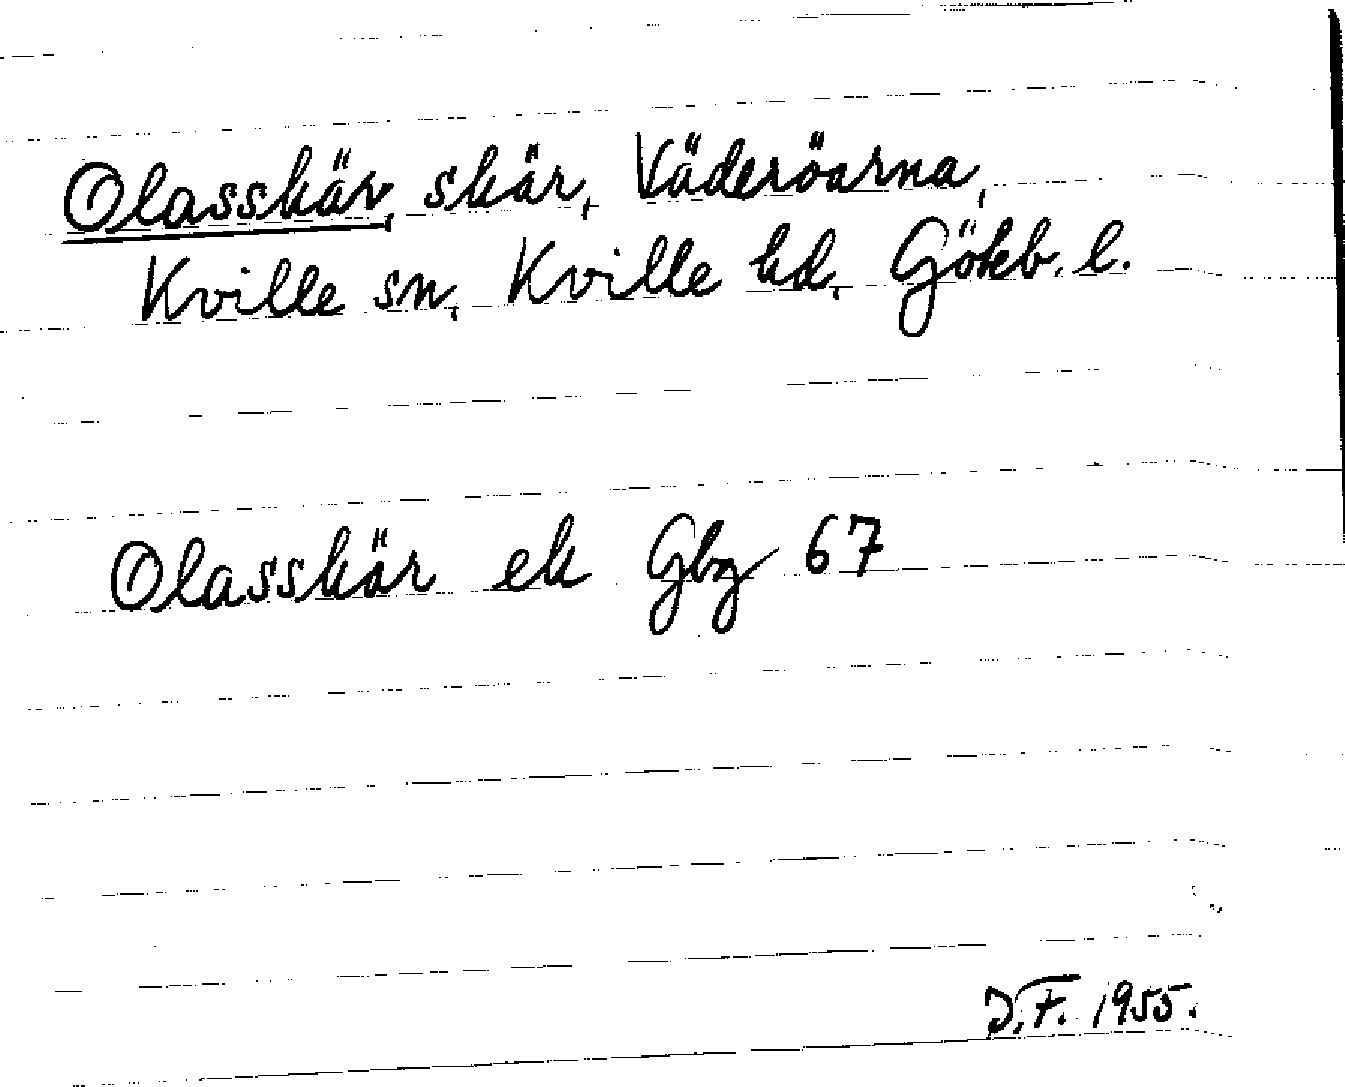 Olasskär, skär, Väderöarna,
Kville sn, Kville hd, Göteb. l.
Olasskär ek Gbg 67
D.F. 1955.